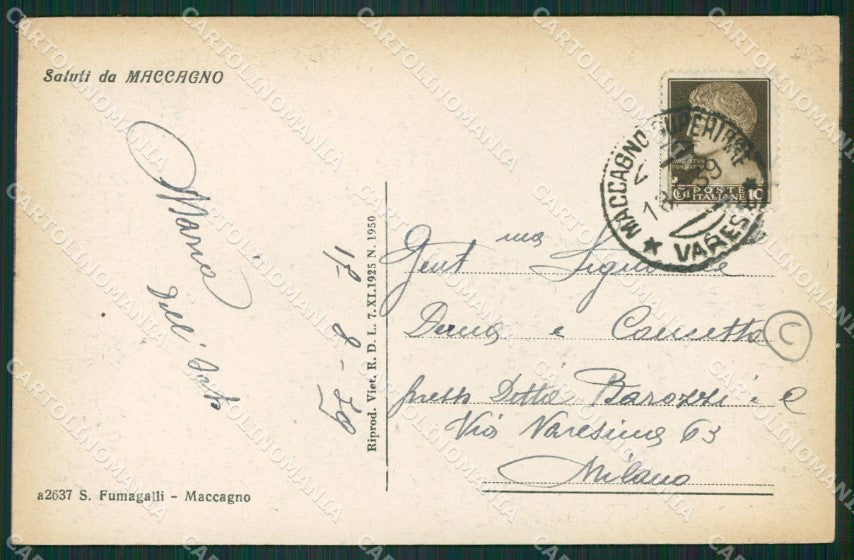 Saluti da MACCAGNO
Maria
Dell'
17 - 8 - 39
Riprod. Viet. R. D. L. 7.XI.1925 N. 1950
a2637 S. Fumagalli - Maccagno
MACCAGNO SUPERIORE
18
39
★ VARESE ★
POSTE
ITALIANE
10
Gent ma Signorine
e
presso Ditta Barozzi e C
Via Varesina 63
Milano
C
CARTOLINOMANIA